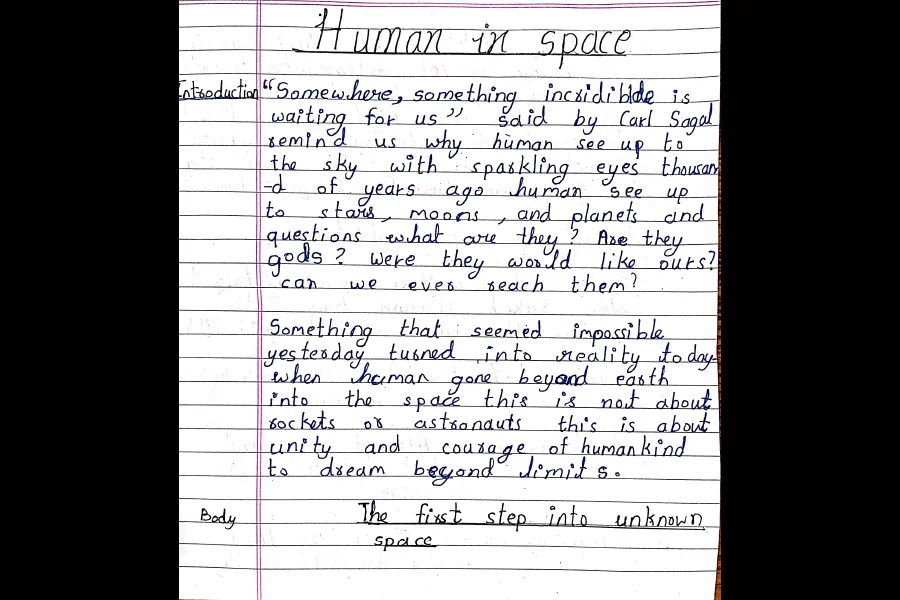 Human in space
Introduction "Somewhere, something incridible is
waiting for us" said by Carl Sagal
remind us why human see up to
the sky with sparkling eyes thousan
-d of years ago human see up
to stars, moons, and planets and
questions what are they? Are they
gods? Were they world like ours?
can we ever reach them?
Something that seemed impossible
yesterday turned into reality today
when human gone beyond earth
into the space this is not about
rockets or astronauts this is about
unity and courage of humankind
to dream beyond limits.
Body The first step into unknown
space